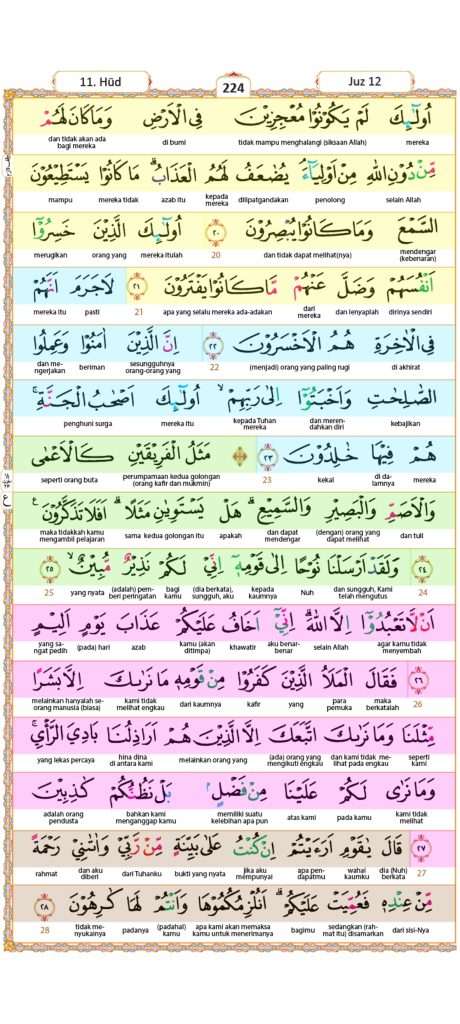 11. Hūd
224
Juz 12
اُولٰۤىِٕكَ لَمْ يَكُوْنُوْا مُعْجِزِيْنَ فِى الْاَرْضِ وَمَا كَانَ لَهُمْ
mereka tidak mampu menghalangi (siksaan Allah) di bumi dan tidak akan ada bagi mereka
مِّنْ دُوْنِ اللّٰهِ مِنْ اَوْلِيَاۤءَ ۘ يُضٰعَفُ لَهُمُ الْعَذَابُ ۗ مَا كَانُوْا يَسْتَطِيْعُوْنَ
selain Allah penolong dilipatgandakan kepada mereka azab itu mereka tidak mampu
السَّمْعَ وَمَا كَانُوْا يُبْصِرُوْنَ ٢٠ اُولٰۤىِٕكَ الَّذِيْنَ خَسِرُوْٓا
mendengar (kebenaran) dan tidak dapat melihat(nya) 20 mereka itulah orang yang merugikan
اَنْفُسَهُمْ وَضَلَّ عَنْهُمْ مَّا كَانُوْا يَفْتَرُوْنَ ٢١ لَاجَرَمَ اَنَّهُمْ
dirinya sendiri dan lenyaplah dari mereka apa yang selalu mereka ada-adakan 21 pasti mereka itu
فِى الْاٰخِرَةِ هُمُ الْاَخْسَرُوْنَ ٢٢ اِنَّ الَّذِيْنَ اٰمَنُوْا وَعَمِلُوا
di akhirat (menjadi) orang yang paling rugi 22 sesungguhnya orang-orang yang beriman dan me-ngerjakan
الصّٰلِحٰتِ وَاَخْبَتُوْٓا اِلٰى رَبِّهِمْ ۙ اُولٰۤىِٕكَ اَصْحٰبُ الْجَنَّةِ ۚ
kebajikan dan meren-dahkan diri kepada Tuhan mereka mereka itu penghuni surga
هُمْ فِيْهَا خٰلِدُوْنَ ٢٣ مَثَلُ الْفَرِيْقَيْنِ كَالْاَعْمٰى
mereka di da-lamnya kekal 23 perumpamaan kedua golongan (orang kafir dan mukmin) seperti orang buta
وَالْاَصَمِّ وَالْبَصِيْرِ وَالسَّمِيْعِ ۗ هَلْ يَسْتَوِيٰنِ مَثَلًا ۗ اَفَلَا تَذَكَّرُوْنَ ࣖ
dan tuli (dengan) orang yang dapat melihat dan dapat mendengar apakah sama kedua golongan itu maka tidakkah kamu mengambil pelajaran
٢٤ وَلَقَدْ اَرْسَلْنَا نُوْحًا اِلٰى قَوْمِهٖٓ اِنِّيْ لَكُمْ نَذِيْرٌ مُّبِيْنٌ ۙ ٢٥
24 dan sungguh, Kami telah mengutus Nuh kepada kaumnya (dia berkata), sungguh, aku bagi kamu (adalah) pem-beri peringatan yang nyata 25
اَنْ لَّا تَعْبُدُوْٓا اِلَّا اللّٰهَ ۖ اِنِّيْٓ اَخَافُ عَلَيْكُمْ عَذَابَ يَوْمٍ اَلِيْمٍ
agar kamu tidak menyembah selain Allah aku benar-benar khawatir kamu (akan ditimpa) azab (pada) hari yang sa-ngat pedih
٢٦ فَقَالَ الْمَلَاُ الَّذِيْنَ كَفَرُوْا مِنْ قَوْمِهٖ مَا نَرٰىكَ اِلَّا بَشَرًا
26 maka berkatalah para pemuka yang kafir dari kaumnya kami tidak melihat engkau melainkan hanyalah se-orang manusia (biasa)
مِّثْلَنَا وَمَا نَرٰىكَ اتَّبَعَكَ اِلَّا الَّذِيْنَ هُمْ اَرَاذِلُنَا بَادِيَ الرَّأْيِ ۚ
seperti kami dan kami tidak me-lihat pada engkau (ada) orang yang mengikuti engkau melainkan orang yang hina dina di antara kami yang lekas percaya
وَمَا نَرٰى لَكُمْ عَلَيْنَا مِنْ فَضْلٍۢ بَلْ نَظُنُّكُمْ كٰذِبِيْنَ
kami tidak melihat pada kamu atas kami memiliki suatu kelebihan apa pun bahkan kami menganggap kamu adalah orang pendusta
٢٧ قَالَ يٰقَوْمِ اَرَءَيْتُمْ اِنْ كُنْتُ عَلٰى بَيِّنَةٍ مِّنْ رَّبِّيْ وَاٰتٰىنِيْ رَحْمَةً
27 dia (Nuh) berkata wahai kaumku apa pen-dapatmu jika aku mempunyai bukti yang nyata dari Tuhanku dan aku diberi rahmat
مِّنْ عِنْدِهٖ فَعُمِّيَتْ عَلَيْكُمْ ۗ اَنُلْزِمُكُمُوْهَا وَاَنْتُمْ لَهَا كٰرِهُوْنَ ٢٨
dari sisi-Nya sedangkan (rah-mat itu) disamarkan bagimu apa kami akan memaksa kamu untuk menerimanya (padahal) kamu padanya tidak me-nyukainya 28